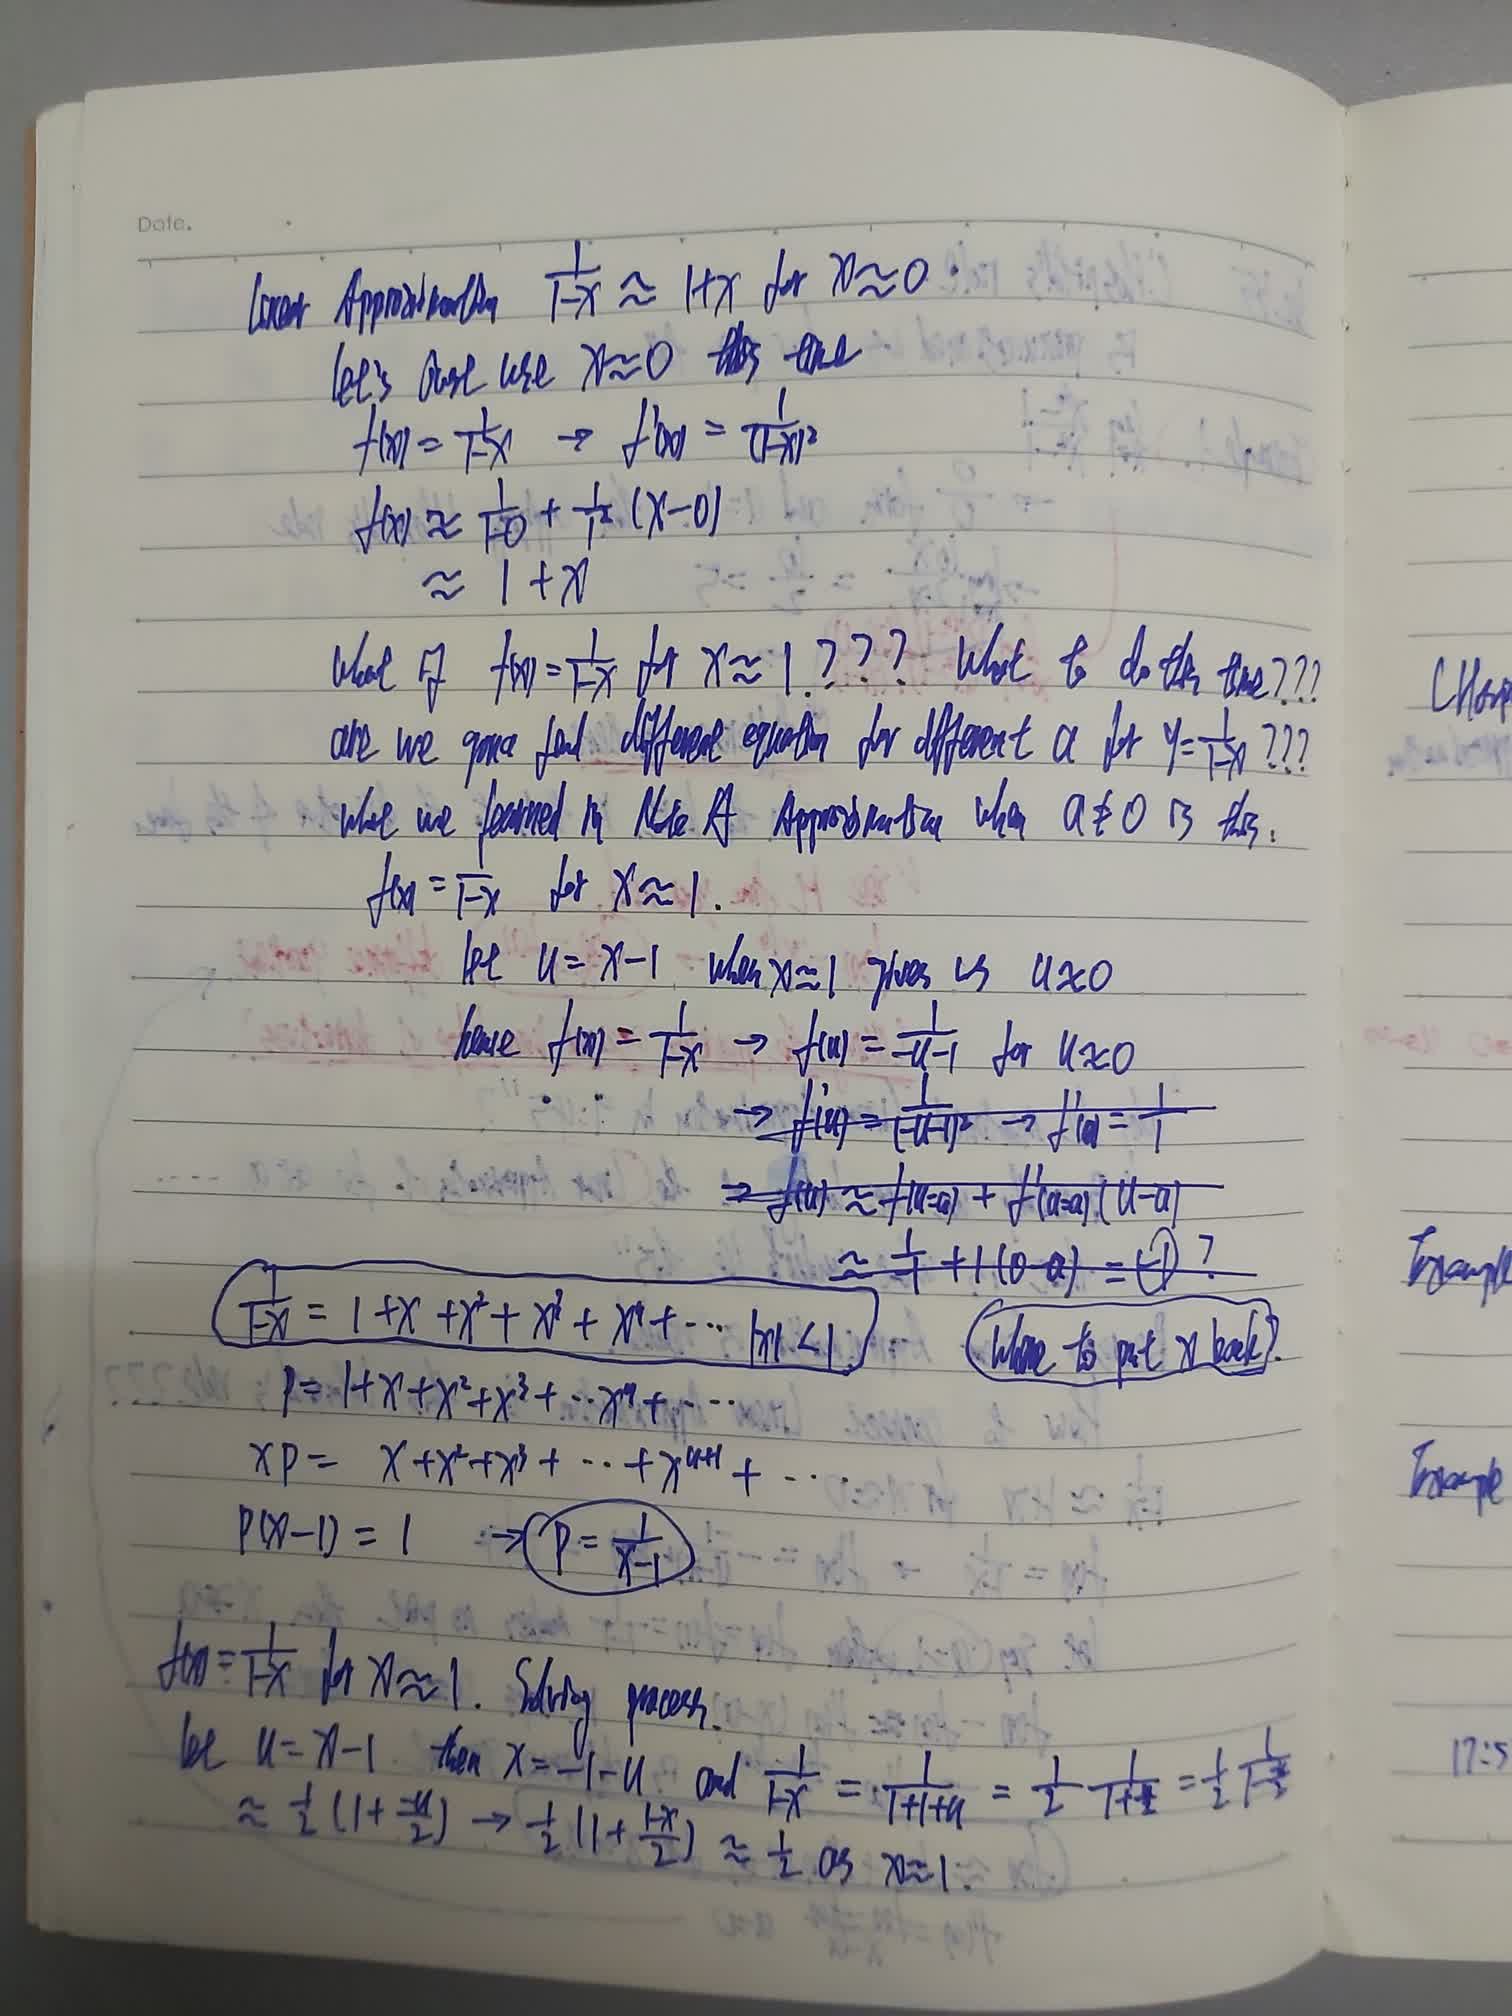 Date.
Linear Approximation 1/(1-x) ≈ 1+x for x≈0
let's just use x≈0 this time
f(x) = 1/(1-x) → f'(x) = 1/(1-x)²
f(x) ≈ 1/(1-0) + 1/1² (x-0)
≈ 1+x
What if f(x) = 1/(1-x) for x≈1??? What to do this time???
are we gonna find different equation for different a for y = 1/(1-x)???
what we learned in Note of Approximation when a≠0 is this.
f(x) = 1/(1-x) for x≈1.
let u = x-1 when x≈1 gives us u≈0
hence f(x) = 1/(1-x) → f(u) = 1/(-u-1) for u≈0
→ f'(u) = 1/(-u-1)² → f'(0) = 1/1
→ f(u) ≈ f(u=a) + f'(u=a)(u-a)
≈ 1/-1 + 1(0-a) = (-1)?
1/(1-x) = 1+x+x²+x³+x⁴+··· |x|<1
Where to put x back?
P = 1+x+x²+x³+···xⁿ+···
xP = x+x²+x³+···+xⁿ⁺¹+···
P(x-1) = 1 → P = 1/(x-1)
f(x) = 1/(1-x) for x≈1. Solving process.
let u = x-1 then x = -1-u and 1/(1-x) = 1/(1+1+u) = 1/2 1/(1+u/2) = 1/2
≈ 1/2 (1+ -u/2) → 1/2 (1+ (1-x)/2) ≈ 1/2 as x≈1.
Example
Example